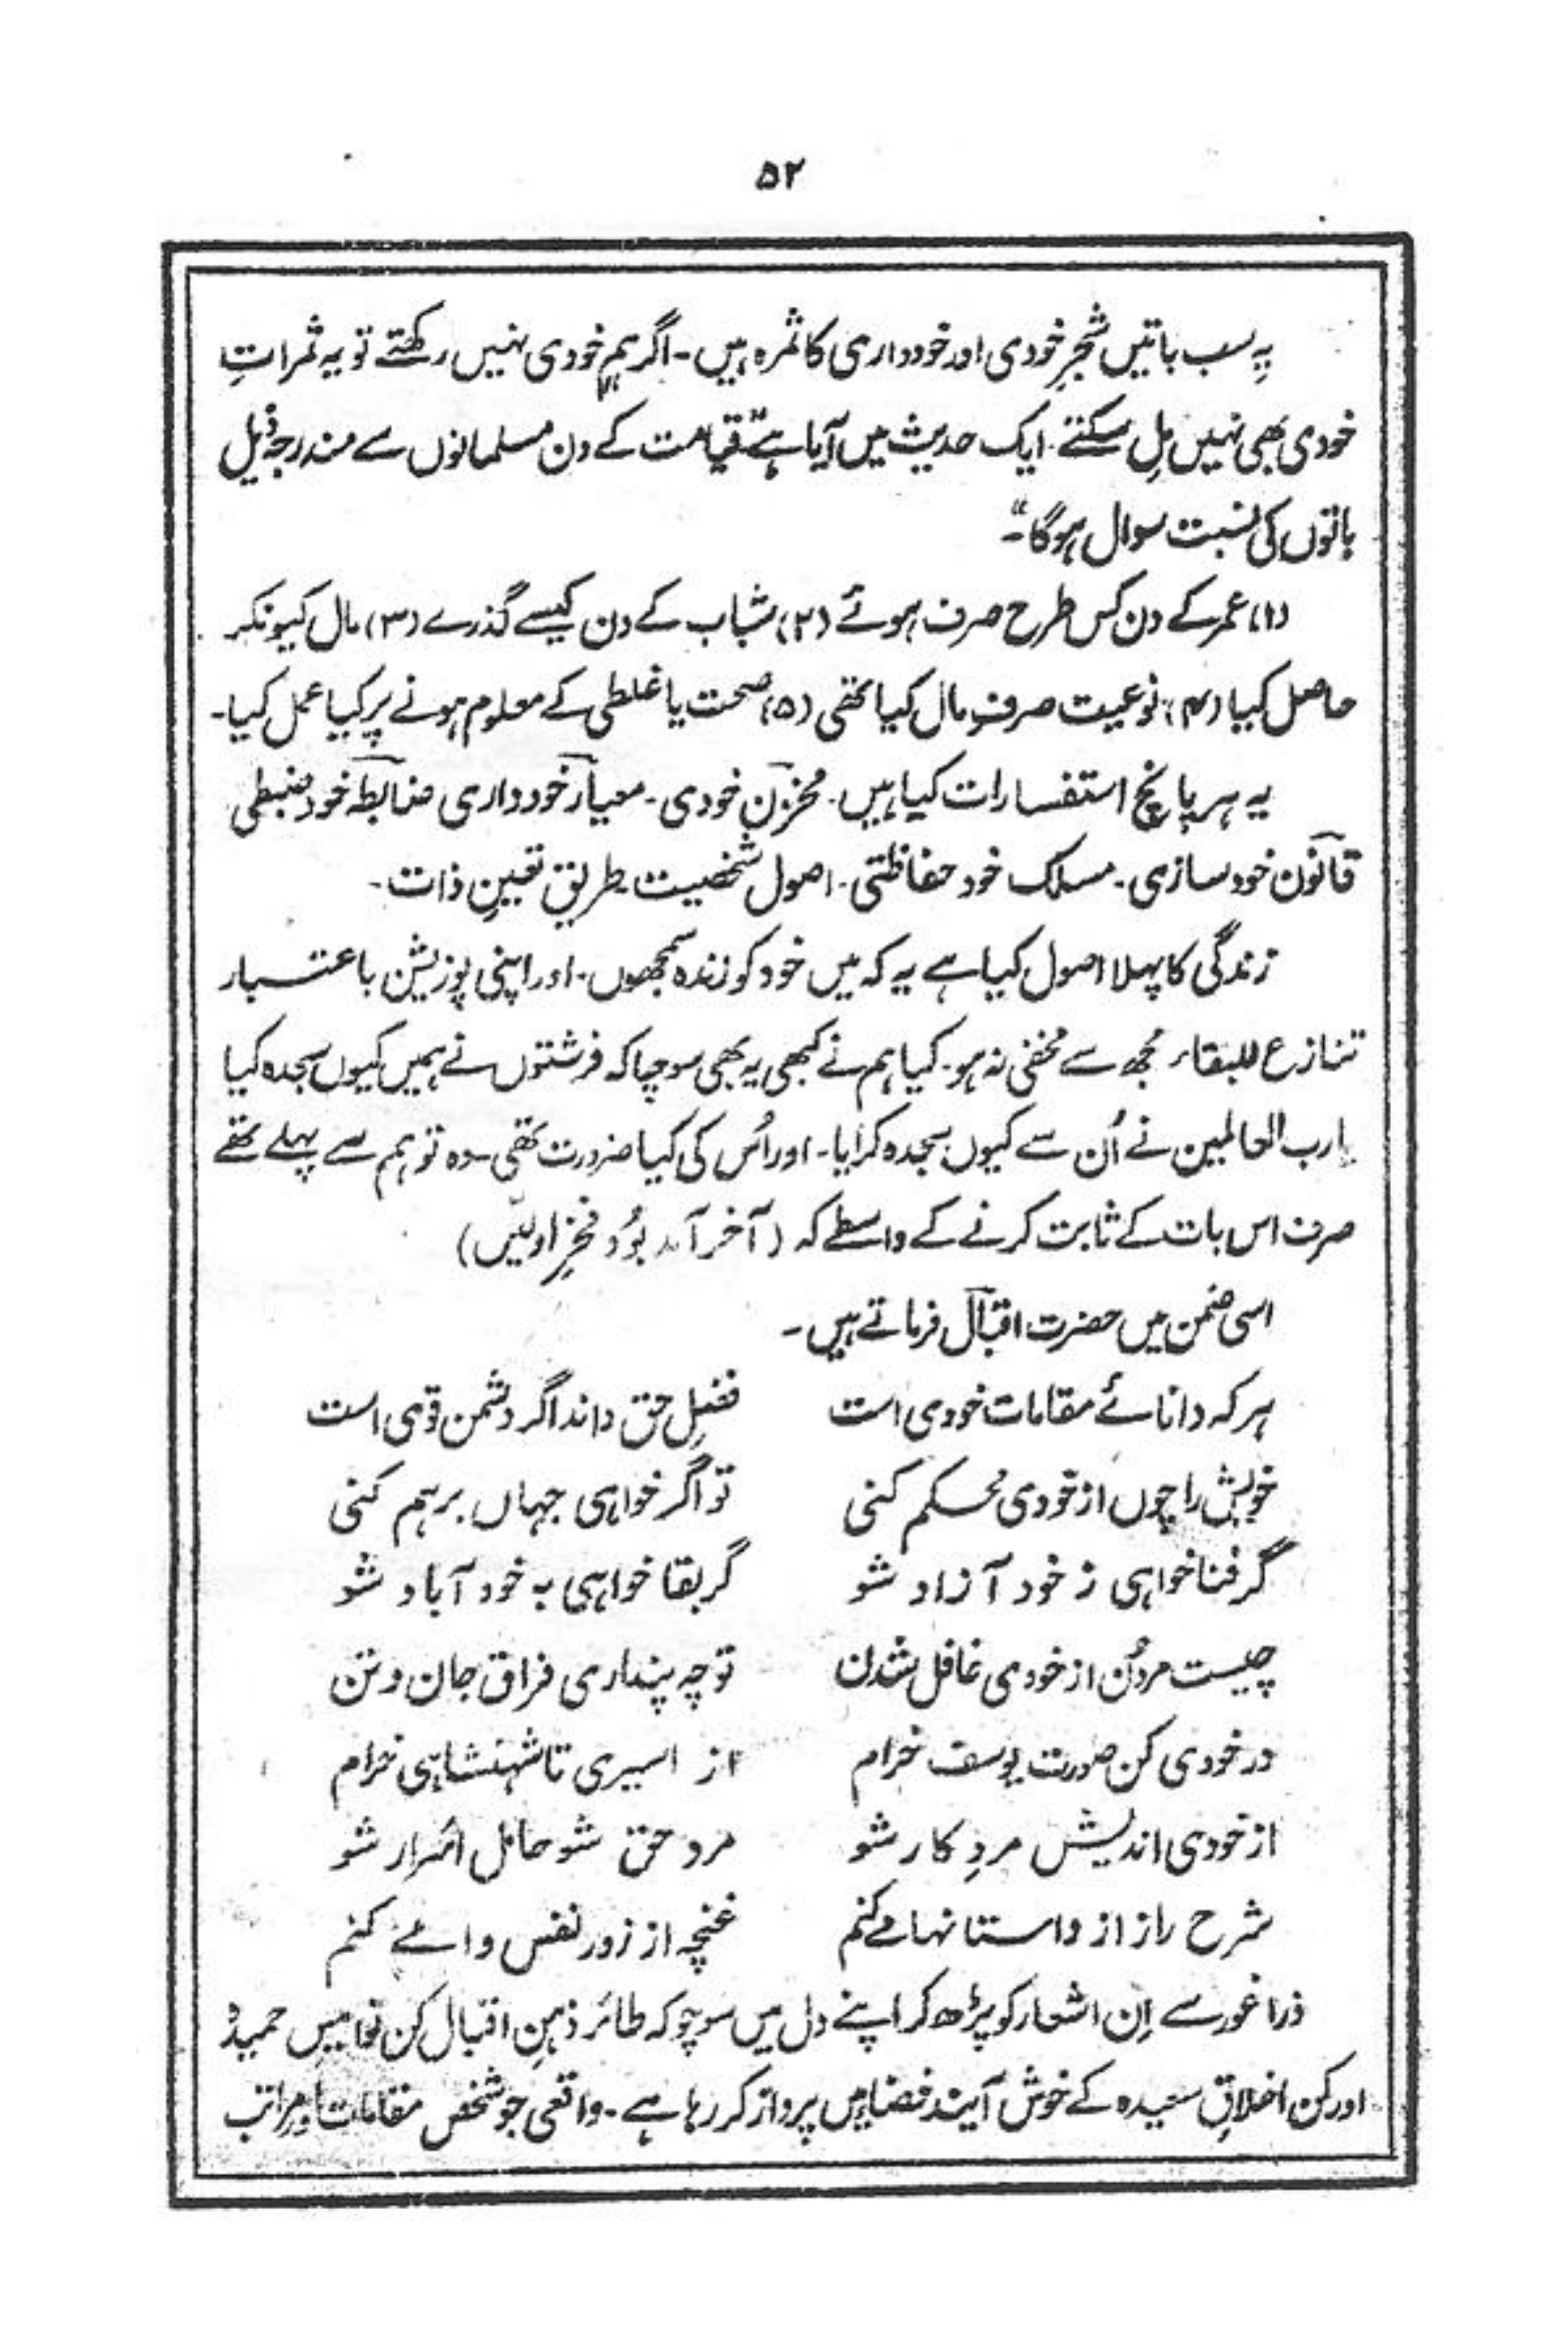 ۵۲
یہ سب باتیں شجرِ خودی اور خودداری کا ثمرہ ہیں۔ اگر ہم خودی نہیں رکھتے تو یہ ثمراتِ
خودی بھی نہیں مِل سکتے۔ ایک حدیث میں آیا ہے "قیامت کے دن مسلمانوں سے مندرجہ ذیل
باتوں کی نسبت سوال ہوگا"۔
(۱) عمر کے دن کس طرح صرف ہوئے (۲) شباب کے دن کیسے گذرے (۳) مال کیونکر
حاصل کیا (۴) نوعیت صرفِ مال کیا تھی (۵) صحت یا غلطی کے معلوم ہونے پر کیا عمل کیا۔
یہ ہر پانچ استفسارات کیا ہیں۔ مخزن خودی۔ معیار خودداری ضابطہ خود ضبطی
قانون خود سازی۔ مسلک خود حفاظتی۔ اصول شخصیت طریق تعیینِ ذات۔
زندگی کا پہلا اصول کیا ہے یہ کہ میں خود کو زندہ سمجھوں۔ اور اپنی پوزیشن باعتبار
تنازع للبقاء مُجھ سے مخفی نہ ہو۔ کیا ہم نے کبھی یہ بھی سوچا کہ فرشتوں نے ہمیں کیوں سجدہ کیا
یا رب العالمین نے اُن سے کیوں سجدہ کرایا۔ اور اُس کی کیا ضرورت تھی۔ وہ تو ہم سے پہلے تھے
صرف اس بات کے ثابت کرنے کے واسطے کہ (آخر آمد بُود فخرِ اولیں)
اسی ضمن میں حضرت اقبال فرماتے ہیں۔
ہر کہ دانائے مقامات خودی است فضلِ حق داند اگر دشمن قوی است
خویش را چوں از خودی محکم کنی تو اگر خواہی جہاں برہم کنی
گر فنا خواہی ز خود آزاد شو گر بقا خواہی بہ خود آباد شو
چیست مردن از خودی غافل شدن تو چہ پنداری فراق جان و تن
در خودی کن صورت یوسف خرام از اسیری تا شہنشاہی خرام
از خودی اندیش مردِ کار شو مرد حق شو حامل اسرار شو
شرح راز از داستانہا مے کنم غنچہ از زور نفس وا مے کنم
ذرا غور سے اِن اشعار کو پڑھ کر اپنے دل میں سوچو کہ طائر ذہنِ اقبال کن نوامیسِ حمیدہ
اور کن اخلاقِ سعیدہ کے خوش آیند فضا میں پرواز کر رہا ہے۔ واقعی جو شخص مقامات اور مراتب